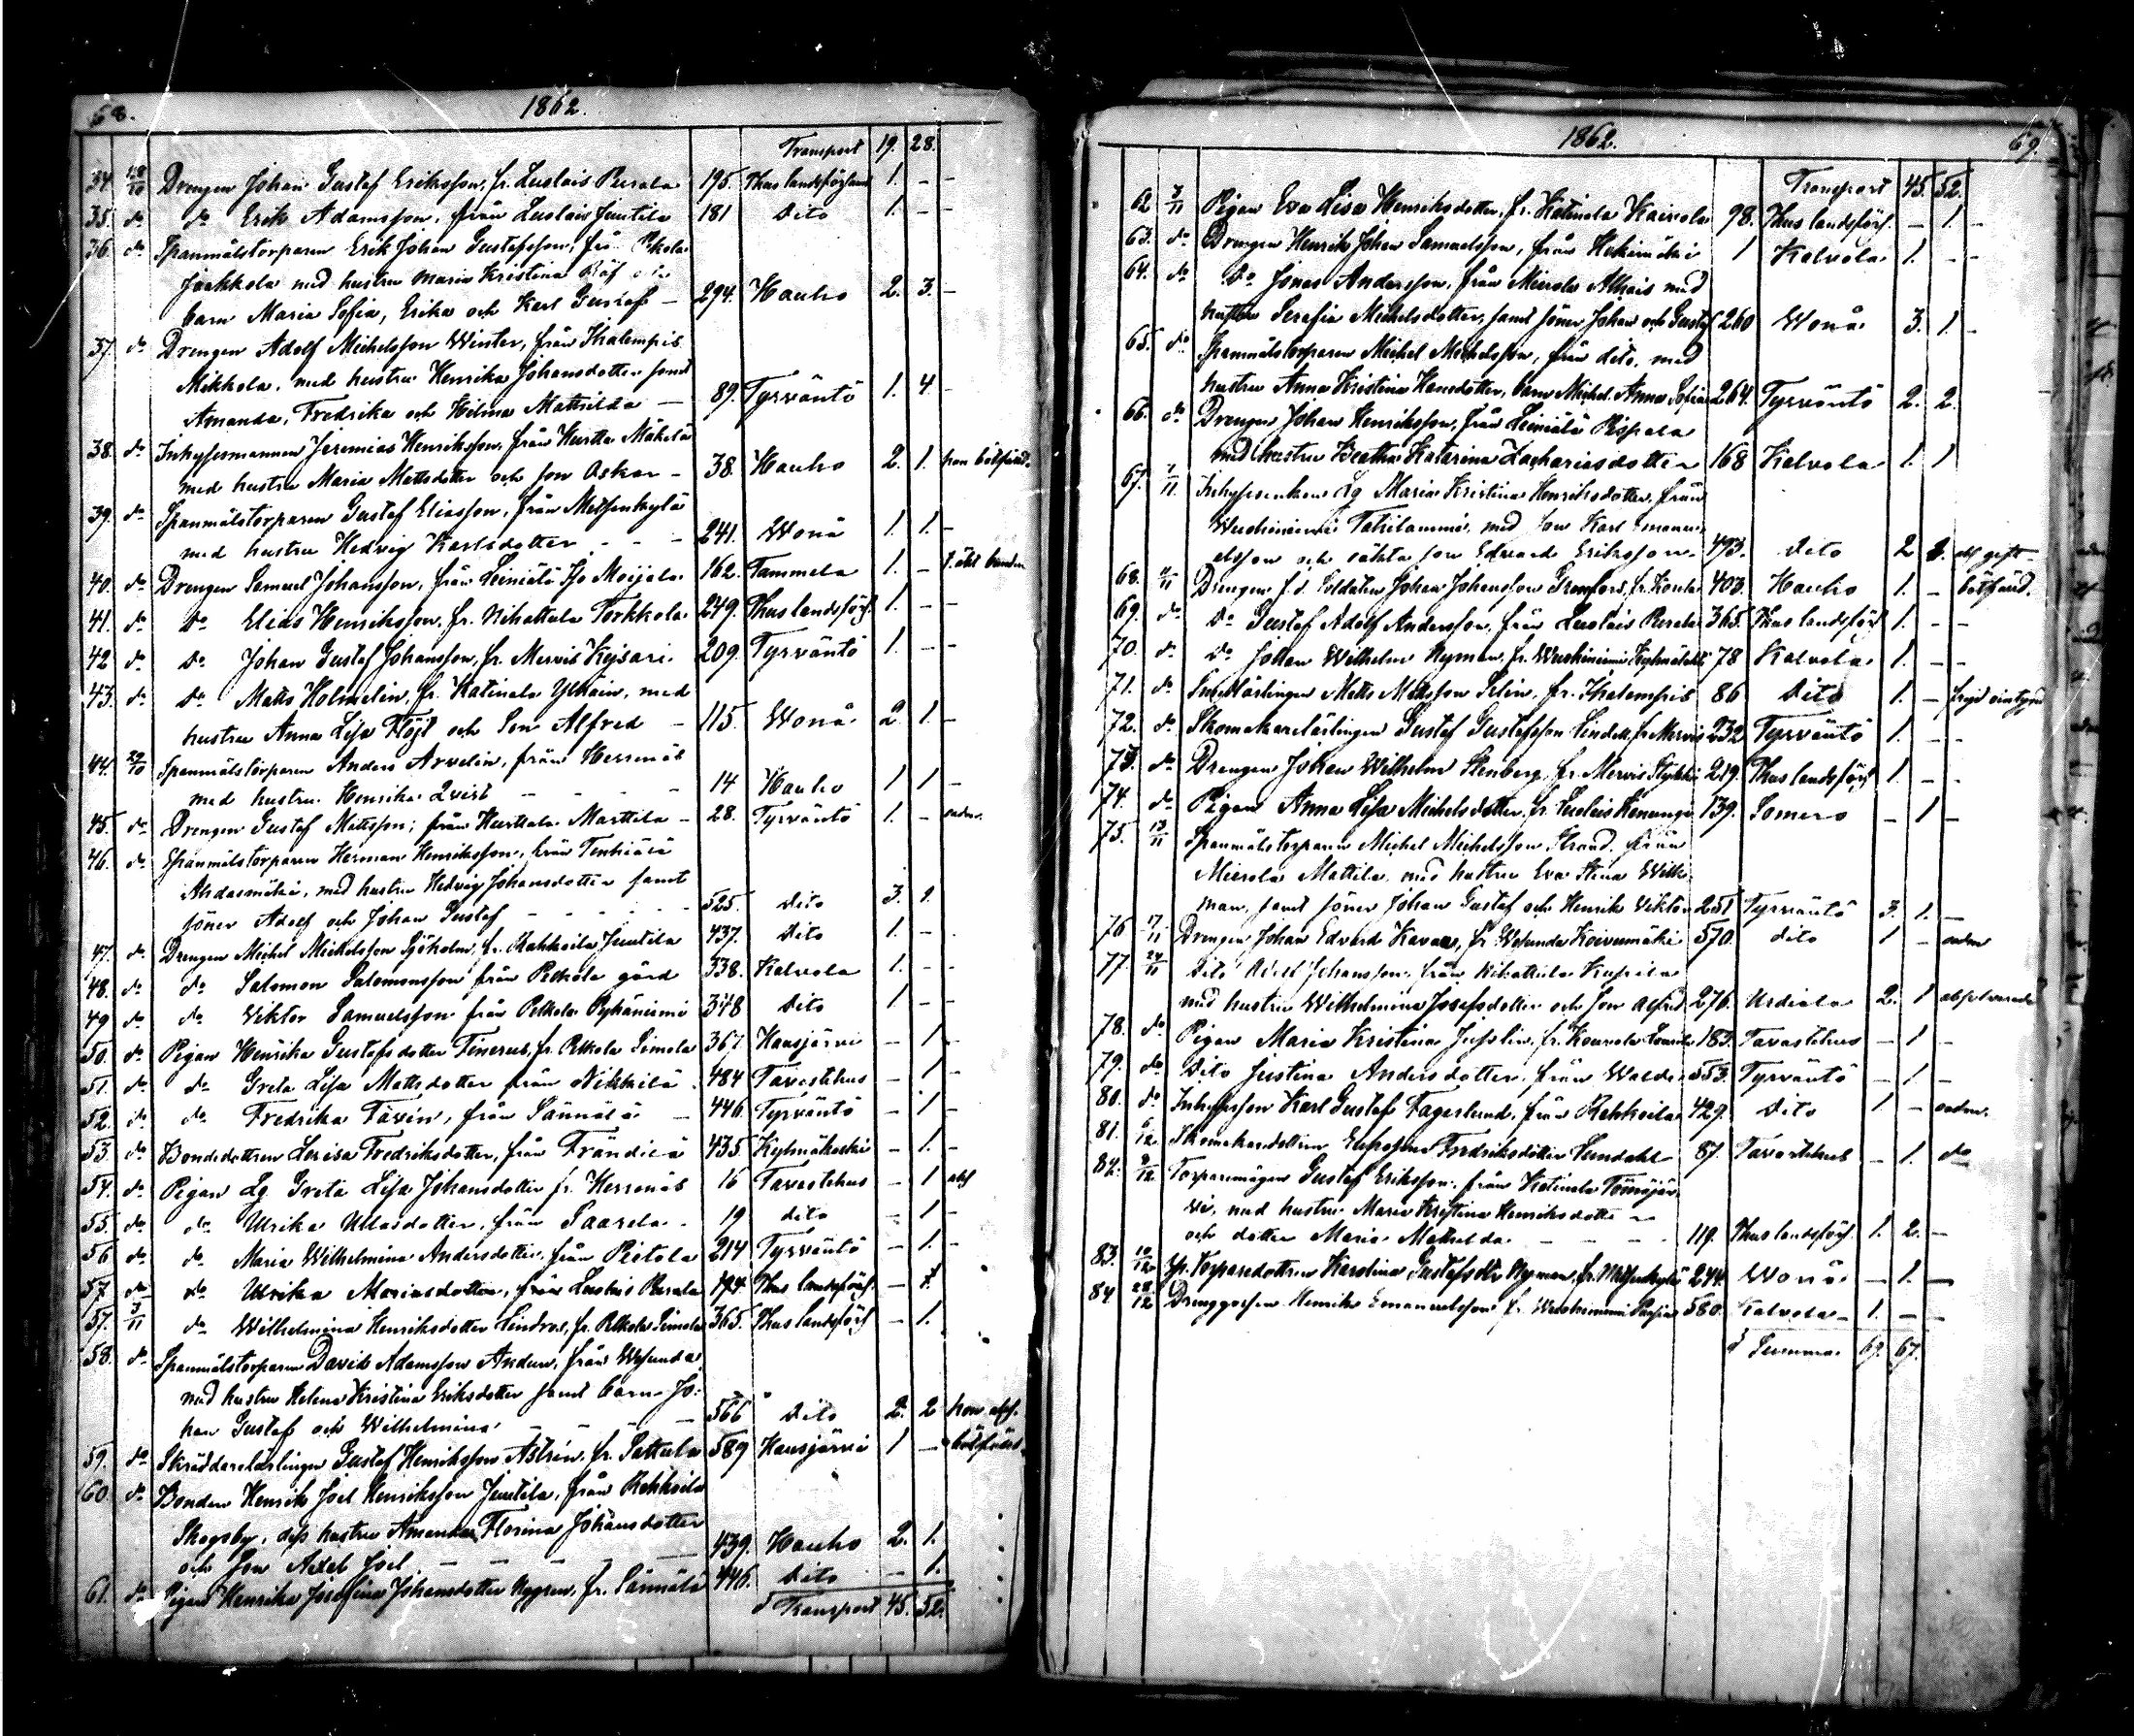 68. 1862.
Transport 19. 28.
34. 18/10 Drengen Johan Gustaf Eriksson, fr. Luolais Perala 195. Thus landsförsaml 1. - -
35. do do Erik Adamsson, från Luolais Juutila 181 Dito 1. - -
36. do Spanmålstorparen Erik Johan Gustafsson, frå. Pelkola
Jaakkola med hustru Maria Kristina Räf och
barn Maria Sofia, Erika och Karl Gustaf - 294. Hauho 2. 3. -
37. do Drengen Adolf Michelsson Winter, från Ihalempis
Mikkola, med hustru Henrika Johansdotter samt
Amanda, Fredrika och Hilma Mathilda - 89. Tyrväntö 1. 4 -
38. do Inhysesmannen Jeremias Henriksson, från Hurttala Mäkelä
med hustru Maria Mattsdotter och son Oskar - 38. Hauho 2. 1. han bötfäld.
39. do Spanmålstorparen Gustaf Eliasson, från Metsenkylä
med hustru Hedvig Karlsdotter - - - 241. Wonå 1. 1. -
40. do Drengen Samuel Johansson, från Leiniälä Iso Moijala 162. Tammela 1. -
41. do Do Elias Henriksson, fr. Nihattula Torkkola 249. Thus landsförs. 1. - -
42 do Do Johan Gustaf Johansson, fr. Mervis Kejsari 209. Tyrväntö 1. - -
43. do Do Matts Holmelin, fr. Katinala Ylhäin, med
hustru Anna Lisa Flöjt och Son Alfred - 115. Wonå 2. 1. -
44. 29/10 Spanmålstorparen Anders Arvelin, från Herrnäs
med hustru Henrika Qvist - - - - 14 Hauho 1 1 -
45. do Drengen Gustaf Mattsson, från Hurttala Marttila - 28. Tyrväntö 1. -
46. do Spanmålstorparen Herman Henriksson, från Tenhiälä
Ahdasmäki, med hustru Hedvig Johansdotter samt
söner Adolf och Johan Gustaf - - - - - 525. Dito 3. 1.
47. do Drengen Michel Michelsson Sjöholm, fr. Rahkoila Juutila 437. Dito 1. -
48. do do Salomon Salomonsson från Pelkola gård 338. Kalvola 1. - -
49 do do Viktor Samuelsson från Pelkola Pyhäniemi 348 Dito 1 - -
50. do Pigan Henrika Gustafsdotter Finerus, fr. Pelkola Simola 367 Hausjärvi - 1 -
51. do do Greta Lisa Mattsdotter från Nikkilä 484 Tavastehus - 1 -
52. do do Fredrika Taxén, från Sännälä - 446 Tyrväntö - 1 -
53. do Bondedottren Lovisa Fredriksdotter, från Frändilä 435. Kylmäkoski - 1. -
54. do Pigan Lg Greta Lisa Johansdotter fr. Herrnäs 16 Tavastehus - 1
55. do do Ulrika Ullasdotter, från Saarela - 19 dito - 1 -
56 do do Maria Wilhelmina Andersdotter, från Pietola 214 Tyrväntö - 1. -
57 do do Ulrika Mariasdotter, från Luolais Perala 194. Thus landsförs. - 1.
57. 3/11 do Wilhelmina Henriksdotter Lindros, fr. Pelkola Simola 365. Thus landsförs - 1.
58. do Spanmålstorparen David Adamsson Anders, från Wesunda
med hustru Helena Kristina Eriksdotter samt barn Jo-
han Gustaf och Wilhelmina - - - - 566 Dito 2. 2
59. do Skräddarelärlingen Gustaf Henriksson Aström, fr. Sattula 589 Hausjärvi 1 -
60 do Bonden Henrik Joel Henriksson Juutila, från Rahkoila
Skogsby, dess hustru Amanda Florina Johansdotter
och Son Axel Joel - - - - 439. Hauho 2. 1.
61. do Pigan Henrika Josefina Johansdotter Nygren, fr. Sännälä 446. Dito - 1.
Transport 45. 52.
1862. 69.
Transport 45. 52.
62 3/11 Pigan Eva Lisa Henriksdotter, fr. Katinala Kaivola 98. Thus landsförs. - 1. -
63. do Drengen Henrik Johan Samuelsson, från Hakimäki 1 Kalvola 1. - -
64. do Do Jonas Andersson, från Mierola Alhais med
hustru Serafia Michelsdotter, samt söner Johan och Gustaf 260 Wonå 3. 1. -
65. do Spanmålstorparen Michel Michelsson, från dito, med
hustru Anna Kristina Hansdotter, barn Michel, Anna Sofia 264. Tyrväntö 2. 2.
66. do Drengen Johan Henriksson, från Leiniälä Pispala
med hustru Beatha Katarina Zachariasdotter 168 Kalvola 1. 1
67. 7/11. Inhysesenkan Lg Maria Kristina Henriksdotter, från
Wuohiniemi Tahilammi, med son Karl Emanu-
elsson och oäkta son Edvard Eriksson. 493. Dito 2
68. 11/11 Drengen f.d. Soldaten Johan Johansson Granfors, fr. Konila 403. Hauho 1. - bötfäld.
69. do Do Gustaf Adolf Andersson, från Luolais Perala 365. Thus landsförs 1. - -
70. do do Johan Wilhelm Nyman, fr. Wuohiniemi 78 Kalvola 1. - -
71. do Smedlärlingen Matts Mattsson Selin, fr. Ihalempis 86 Dito 1. -
72. do Skomakarelärlingen Gustaf Gustafsson Lindell, fr. Mervis 232 Tyrväntö 1. - -
73. do Drengen Johan Wilhelm Stenberg, fr. Mervis 219. Thus landsförs 1. - -
74. do Pigan Anna Lisa Michelsdotter, fr. Luolais 139. Somero - 1 -
75. 13/11 Spanmålstorparen Michel Michelsson Strand, från
Mierola Mattila, med hustru Eva Stina Wilk-
man, samt söner Johan Gustaf och Henrik Viktor 251 Tyrväntö 3. 1. -
76 17/11 Drengen Johan Edvard Kavan, fr. Wesunda Koivumäki 570. dito 1 -
77. 24/11 Dito Adolf Johansson, från Nihattula Kupila
med hustru Wilhelmina Josefsdotter och son Alfred 276. Urdiala 2. 1
78. do Pigan Maria Kristina Juslin, fr. 183. Tavastehus - 1 -
79. do Dito Justina Andersdotter, från 553. Tyrväntö - 1. -
80. do Inhyseson Karl Gustaf Fagerlund, från Rahkoila 429. Dito 1. -
81. 6/12 Skomakaredottren Eufrosyne Fredriksdotter Sundahl 87. Tavastehus - 1. do
82. 9/12 Torparemågen Gustaf Eriksson, från Katinala Tömäjär-
vi, med hustru Maria Kristina Henriksdotter
och dotter Maria Matilda - - - - 119. Thus landsförs. 1. 2. -
83. 10/12 Sp. Torparedottren Karolina Gustafsdr Nyman, fr. Metsenkylä 244. Wonå - 1. -
84 28/12 Drenggossen Henrik Emanuelsson fr. Wuohiniemi 580. Kalvola - 1. - -
Summa 69. 67.